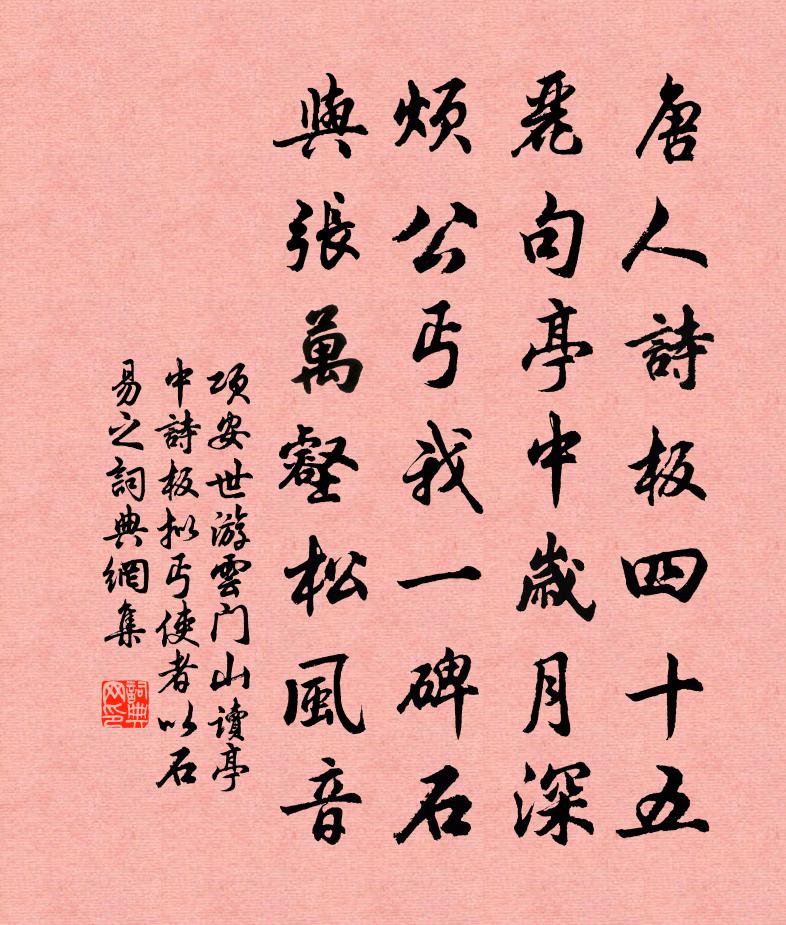 唐人詩板四十五
麗句亭中歲月深
煩公丐我一碑石
與張萬壑松風音
項安世游雲門山讀亭
中詩板拟丐使者以石
易之詞典網集
詞典
网